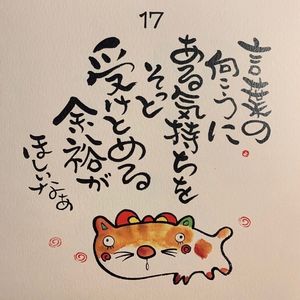 17
言葉の
向こうに
ある気持ちを
そっと
受けとめる
余裕が
ほしいなぁ